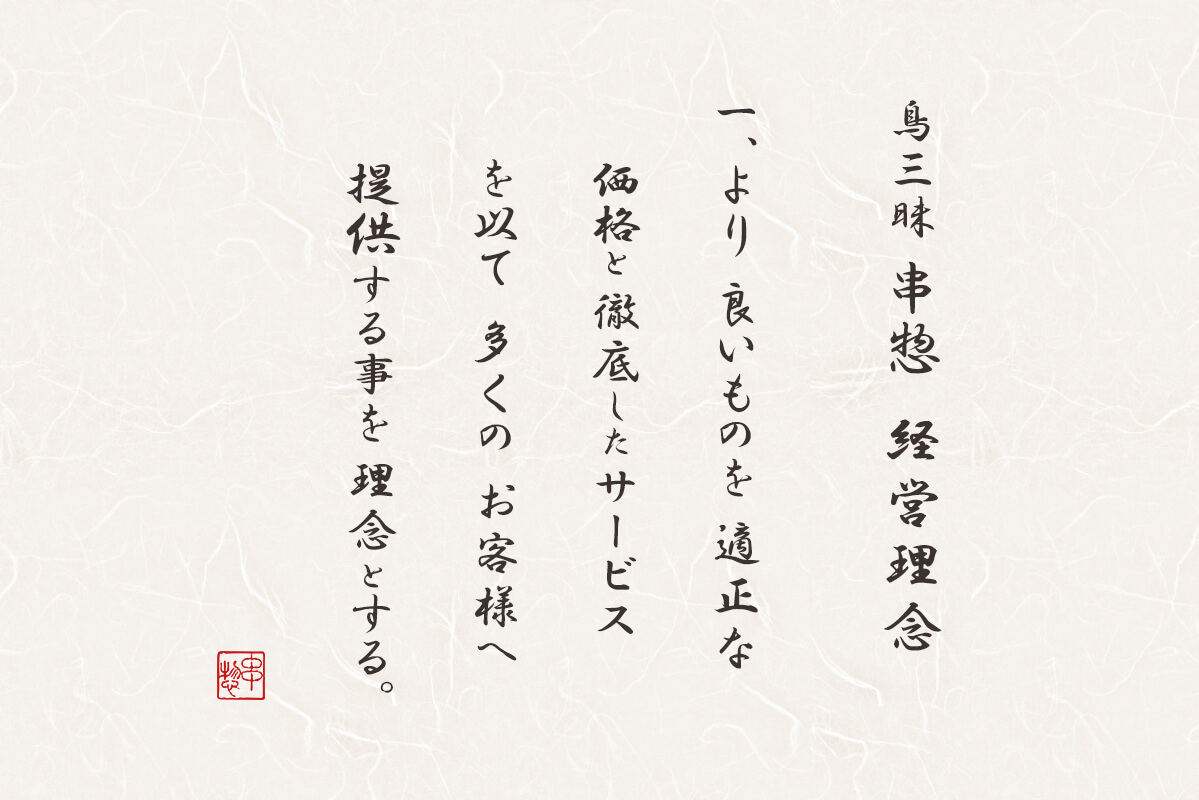 鳥三昧 串惣 経営理念
一、より良いものを適正な
価格と徹底したサービス
を以て多くのお客様へ
提供する事を理念とする。
串惣